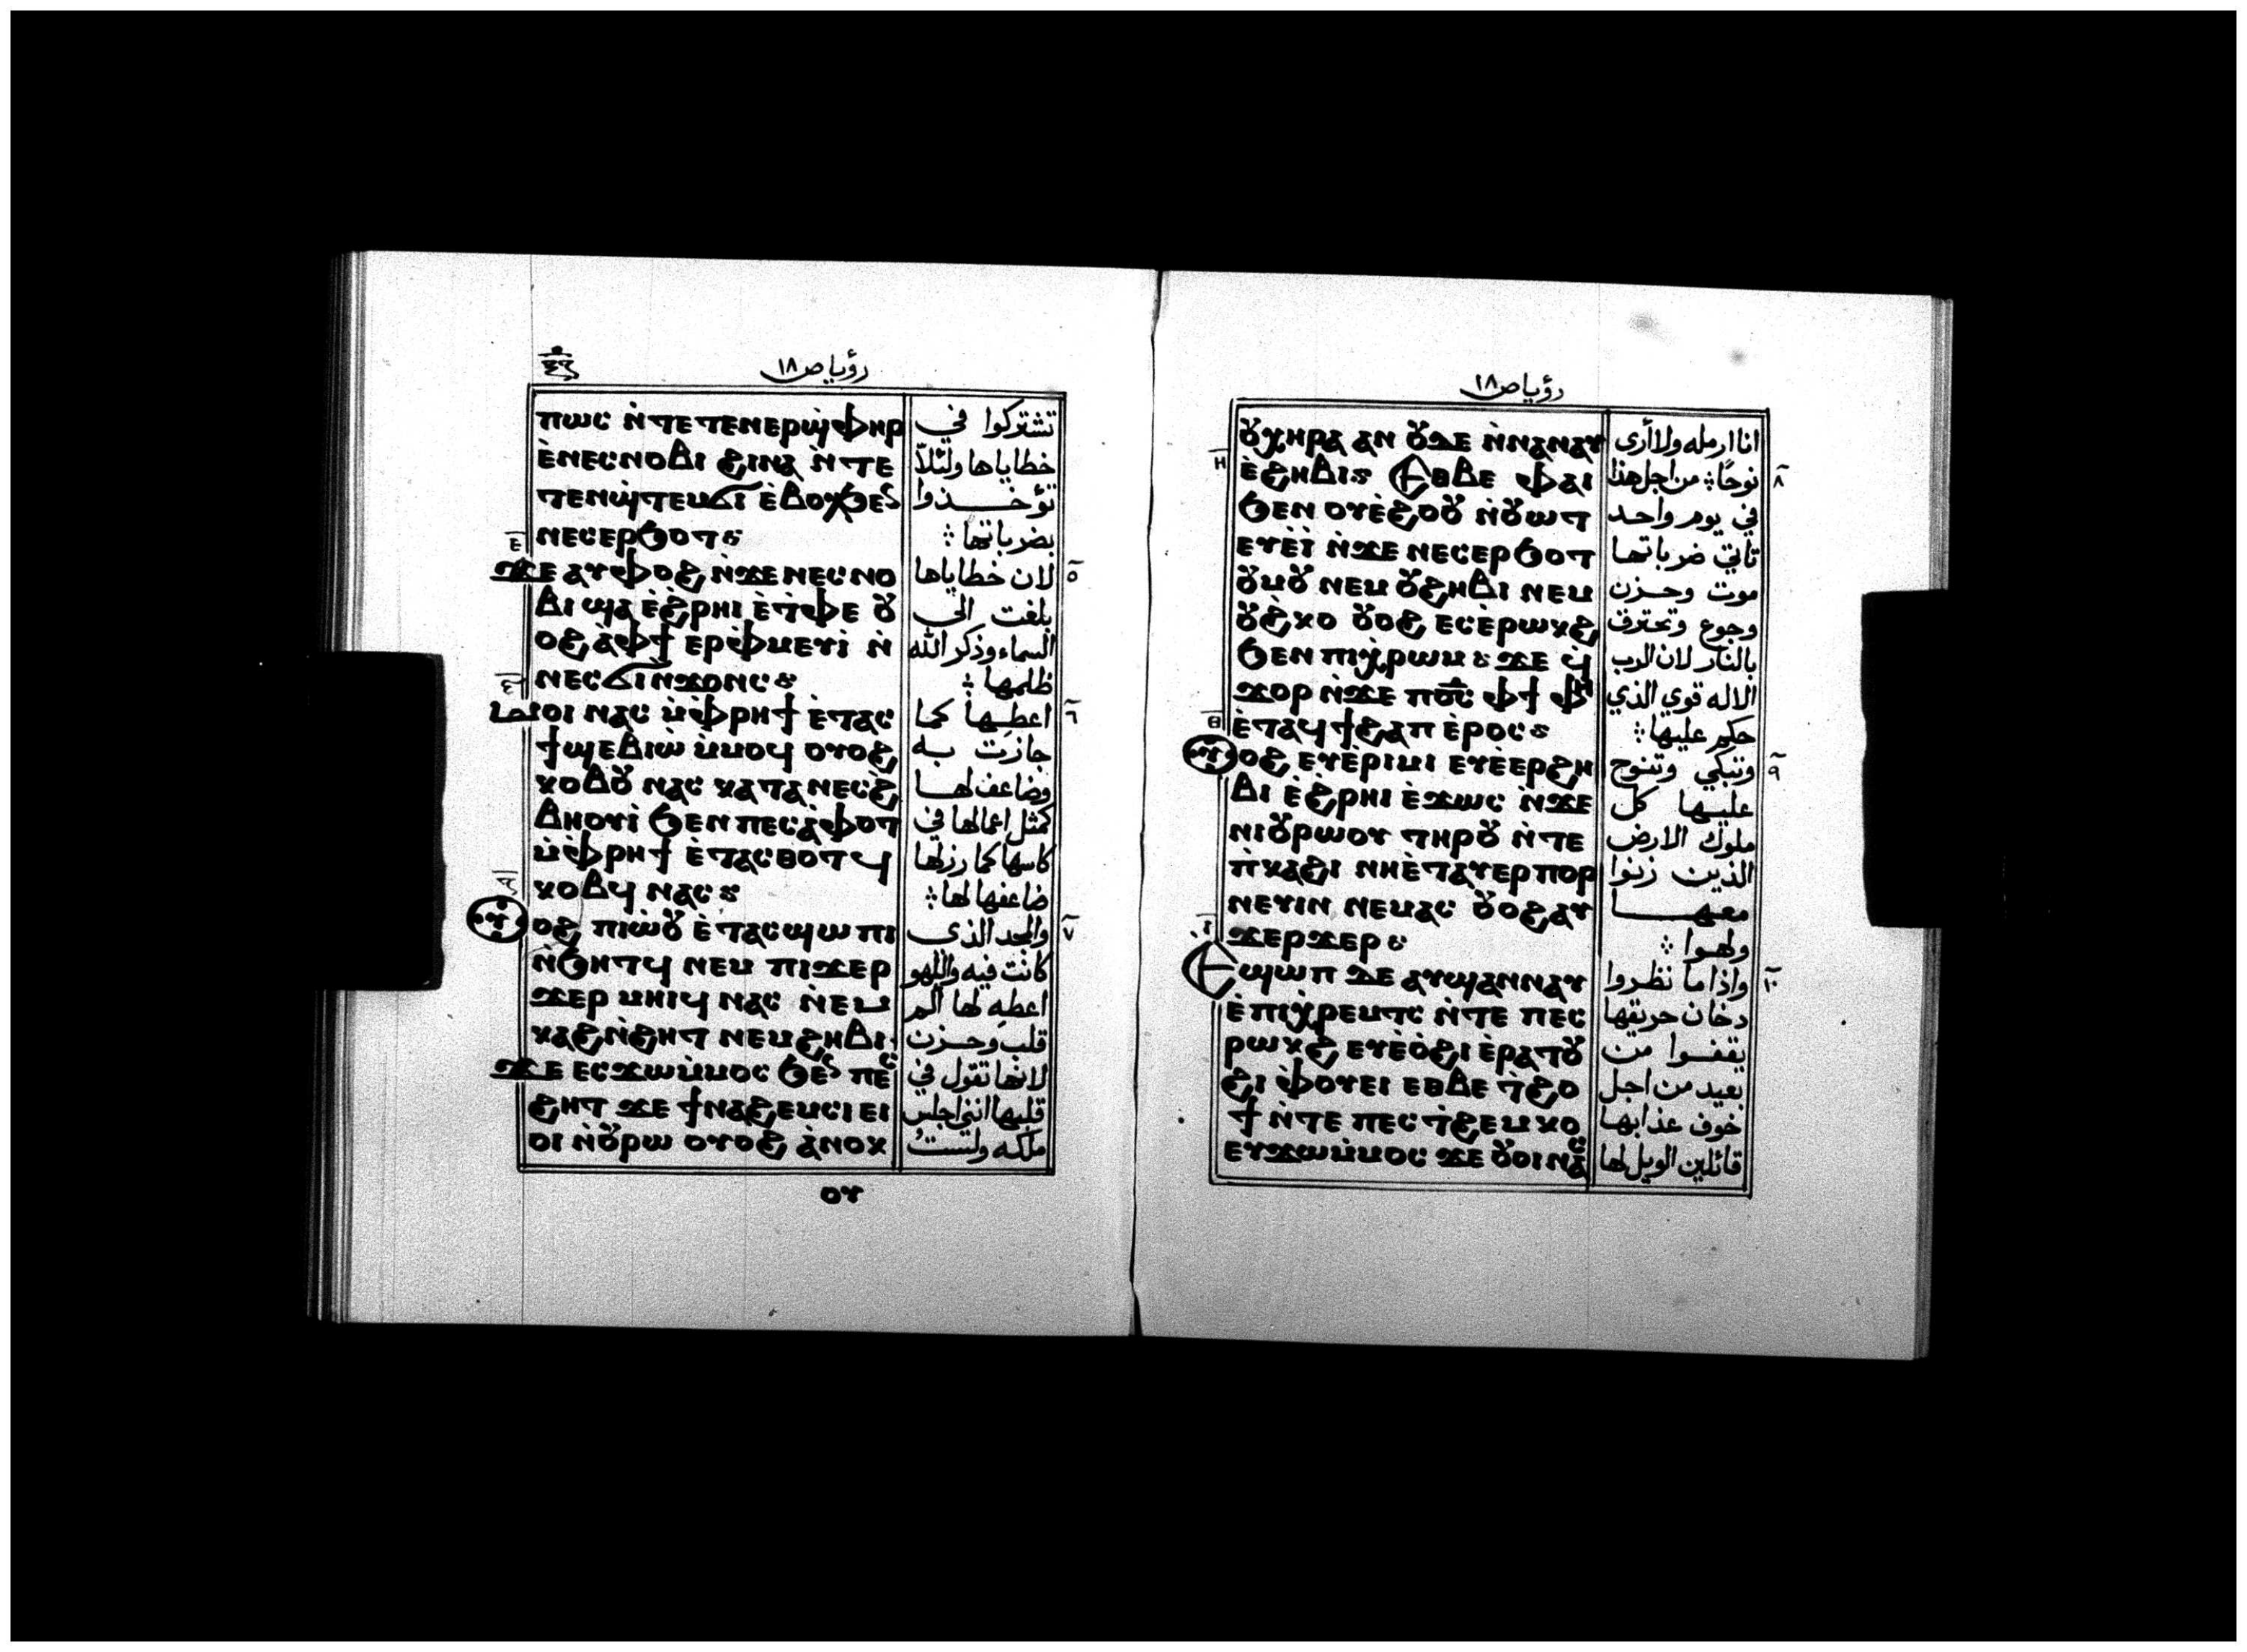 رؤيا ص ١٨
ⲡⲱⲥ ⲛ̀ⲧⲉⲧⲉⲛⲉⲣϣ̀ⲫⲏⲣ
ⲉ̀ⲛⲉⲥⲛⲟⲃⲓ ϩⲓⲛⲁ ⲛ̀ⲧⲉ
ⲧⲉⲛϣ̀ⲧⲉⲙϭⲓ ⲉ̀ⲃⲟⲗϧⲉⲛ
ⲛⲉⲥⲉⲣϧⲟⲧ
ⲉ̅
ϫⲉ ⲁⲩⲫⲟϩ ⲛ̀ϫⲉ ⲛⲉⲥⲛⲟ
ⲃⲓ ϣⲁ ⲉ̀ϩ̀ⲣⲏⲓ ⲉ̀ⲧ̀ⲫⲉ ⲟⲩ
ⲟϩ ⲁ̀ⲫϯ ⲉⲣⲫ̀ⲙⲉⲩⲓ̀ ⲛ̀
ⲛⲉⲥϭⲓⲛϫⲟⲛⲥ
ⲙⲟⲓ ⲛⲁⲥ ⲙ̀ⲫ̀ⲣⲏϯ ⲉ̀ⲧⲁⲥ
ϯϣⲉⲃⲓⲱ̀ ⲙ̀ⲙⲟϥ ⲟⲩⲟϩ
ⲕⲟⲃⲟⲩ ⲛⲁⲥ ⲕⲁⲧⲁ ⲛⲉⲥϩ̀
ⲃⲏⲟⲩⲓ̀ ϧⲉⲛ ⲡⲉⲥⲁ̀ⲫⲟⲧ
ⲙ̀ⲫ̀ⲣⲏϯ ⲉ̀ⲧⲁⲥⲑⲟⲧϥ
ⲕⲟⲃϥ ⲛⲁⲥ
ⲟⲩⲟϩ ⲡⲓⲱ̀ⲟⲩ ⲉ̀ⲧⲁⲥϣⲱⲡⲓ
ⲛ̀ϧⲏⲧϥ ⲛⲉⲙ ⲡⲓϫⲉⲣ
ϫⲉⲣ ⲙⲏⲓϥ ⲛⲁⲥ ⲛ̀ⲉⲙ
ⲕⲁϩⲛ̀ϩⲏⲧ ⲛⲉⲙ ϩⲏⲃⲓ
ϫⲉ ⲉⲥϫⲱⲙ̀ⲙⲟⲥ ϧⲉⲛ ⲡⲉⲥ
ϩⲏⲧ ϫⲉ ϯⲛⲁϩⲉⲙⲥⲓ ⲉⲓ
ⲟⲓ ⲛ̀ⲟⲩⲣⲱ ⲟⲩⲟϩ ⲁ̀ⲛⲟⲕ
ⲟⲩ
تشتركوا في
خطاياها ولئلا
تؤخـــذوا
بضرباتها ⁘
٥ لان خطاياها
بلغت الى
السماء وذكر الله
ظلمها ⁘
٦ اعطيها كما
جازت به
وضاعف لهـا
كمثل اعمالها في
كاسها كما رزلها
ضاعفها لها ⁘
٧ والمجد الذى
كانت فيه واللهو
اعطه لها الم
قلب وحـزن
لانها تقول في
قلبها اننى اجلس
ملكه ولستُ
رؤيا ص ١٨
ⲟⲩⲭⲏⲣⲁ ⲁⲛ ⲟⲩϫⲉ ⲛ̀ⲛⲁⲛⲁⲩ
ⲏ̅
ⲉ̀ϩⲏⲃⲓ Ⲉⲑⲃⲉ ⲫⲁⲓ
ϧⲉⲛ ⲟⲩⲉ̀ϩⲟⲟⲩ ⲛ̀ⲟⲩⲱⲧ
ⲉⲩⲉ̀ⲓ̀ ⲛ̀ϫⲉ ⲛⲉⲥⲉⲣϧⲟⲧ
ⲟⲩⲙⲟⲩ ⲛⲉⲙ ⲟⲩϩⲏⲃⲓ ⲛⲉⲙ
ⲟⲩϩ̀ⲕⲟ ⲟⲩⲟϩ ⲉⲥⲉ̀ⲣⲱⲕϩ
ϧⲉⲛ ⲡⲓⲭ̀ⲣⲱⲙ ϫⲉ ϥ̀
ϫⲟⲣ ⲛ̀ϫⲉ ⲡⲟ̅ⲥ̅ ⲫϯ ⲫⲏ
ⲑ̅
ⲉ̀ⲧⲁϥϯϩⲁⲡ ⲉ̀ⲣⲟⲥ
ⲟⲩⲟϩ ⲉⲩⲉ̀ⲣⲓⲙⲓ ⲉⲩⲉ̀ⲉⲣϩⲏ
ⲃⲓ ⲉ̀ϩ̀ⲣⲏⲓ ⲉ̀ϫⲱⲥ ⲛ̀ϫⲉ
ⲛⲓⲟⲩⲣⲱⲟⲩ ⲧⲏⲣⲟⲩ ⲛ̀ⲧⲉ
ⲡ̀ⲕⲁϩⲓ ⲛⲏⲉ̀ⲧⲁⲩⲉⲣⲡⲟⲣ
ⲛⲉⲩⲓⲛ ⲛⲉⲙⲁⲥ ⲟⲩⲟϩ ⲁⲩ
ϫⲉⲣϫⲉⲣ
ⲓ̅
Ⲉϣⲱⲡ ϫⲉ ⲁⲩϣⲁⲛⲛⲁⲩ
ⲉ̀ⲡⲓⲭ̀ⲣⲉⲙⲧⲥ ⲛ̀ⲧⲉ ⲡⲉⲥ
ⲣⲱⲕϩ ⲉⲩⲉ̀ⲟ̀ϩⲓ ⲉ̀ⲣⲁⲧⲟⲩ
ϩⲓ ⲫ̀ⲟⲩⲉⲓ ⲉⲑⲃⲉ ⲧ̀ϩⲟ
ϯ ⲛ̀ⲧⲉ ⲡⲉⲥⲧ̀ϩⲉⲙⲕⲟ
ⲉⲩϫⲱⲙ̀ⲙⲟⲥ ϫⲉ ⲟⲩⲟⲓ ⲛⲁⲥ
انا ارمله ولا أرى
٨ نوحًا ⁘ من اجل هذا
في يوم واحد
تأتي ضرباتها
موت وحـزن
وجوع وتحترق
بالنار لان الرب
الاله قوي الذي
حكم عليها ⁘
٩ وتبكي وتنوح
عليـها كل
ملوك الارض
الذين زنوا
معهـــا
ولهـوا ⁘
١٠ واذا ما نظروا
دخان حريقها
يقفـوا من
بعيد من اجل
خوف عذابها
قائلين الويل لها